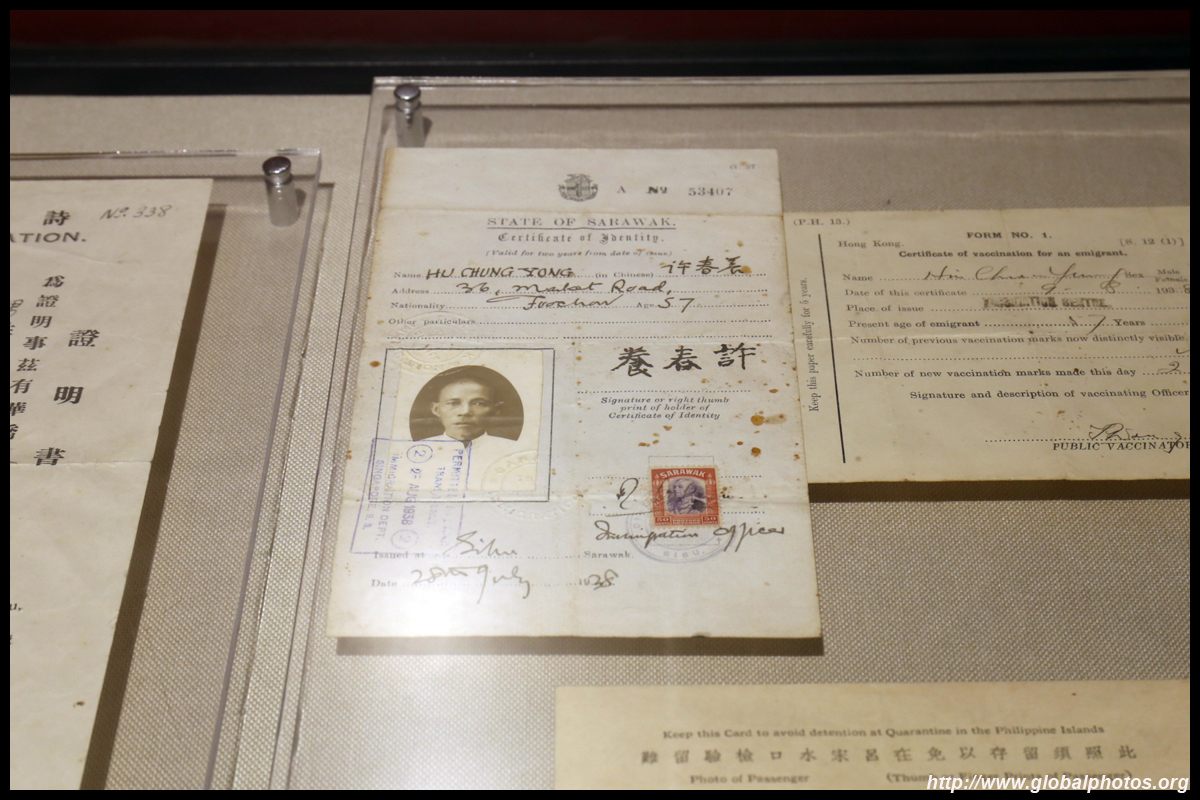 詩
No. 338
ATION.
證明書
為證明事茲有華僑
G. 27
A No 53407
STATE OF SARAWAK.
Certificate of Identity.
(Valid for two years from date of issue)
Name HU CHUNG YONG (in Chinese) 许春养
Address 36, Road,
Nationality Foochow Age 57
Other particulars
許春養
Signature or right thumb
print of holder of
Certificate of Identity
SARAWAK
50 50
PERMITTED
2 AUG 1938 2
IMMIGRATION DEPT.
SINGAPORE, S.S.
Immigration Officer
SIBU
Issued at Sibu Sarawak.
Date 28th July 1938
(P.H. 13.)
FORM NO. 1.
Hong Kong. [S. 12 (1)]
Certificate of vaccination for an emigrant.
Name Sex Male
Female
Date of this certificate 193
Place of issue VACCINATION CENTRE
Present age of emigrant 17 Years
Number of previous vaccination marks now distinctly visible.
Number of new vaccination marks made this day 2
Signature and description of vaccinating Officer
PUBLIC VACCINATOR
Keep this paper carefully for 5 years.
Keep this Card to avoid detention at Quarantine in the Philippine Islands
此照須留存以免在呂宋水口檢驗留難
Photo of Passenger (Thumb
http://www.globalphotos.org